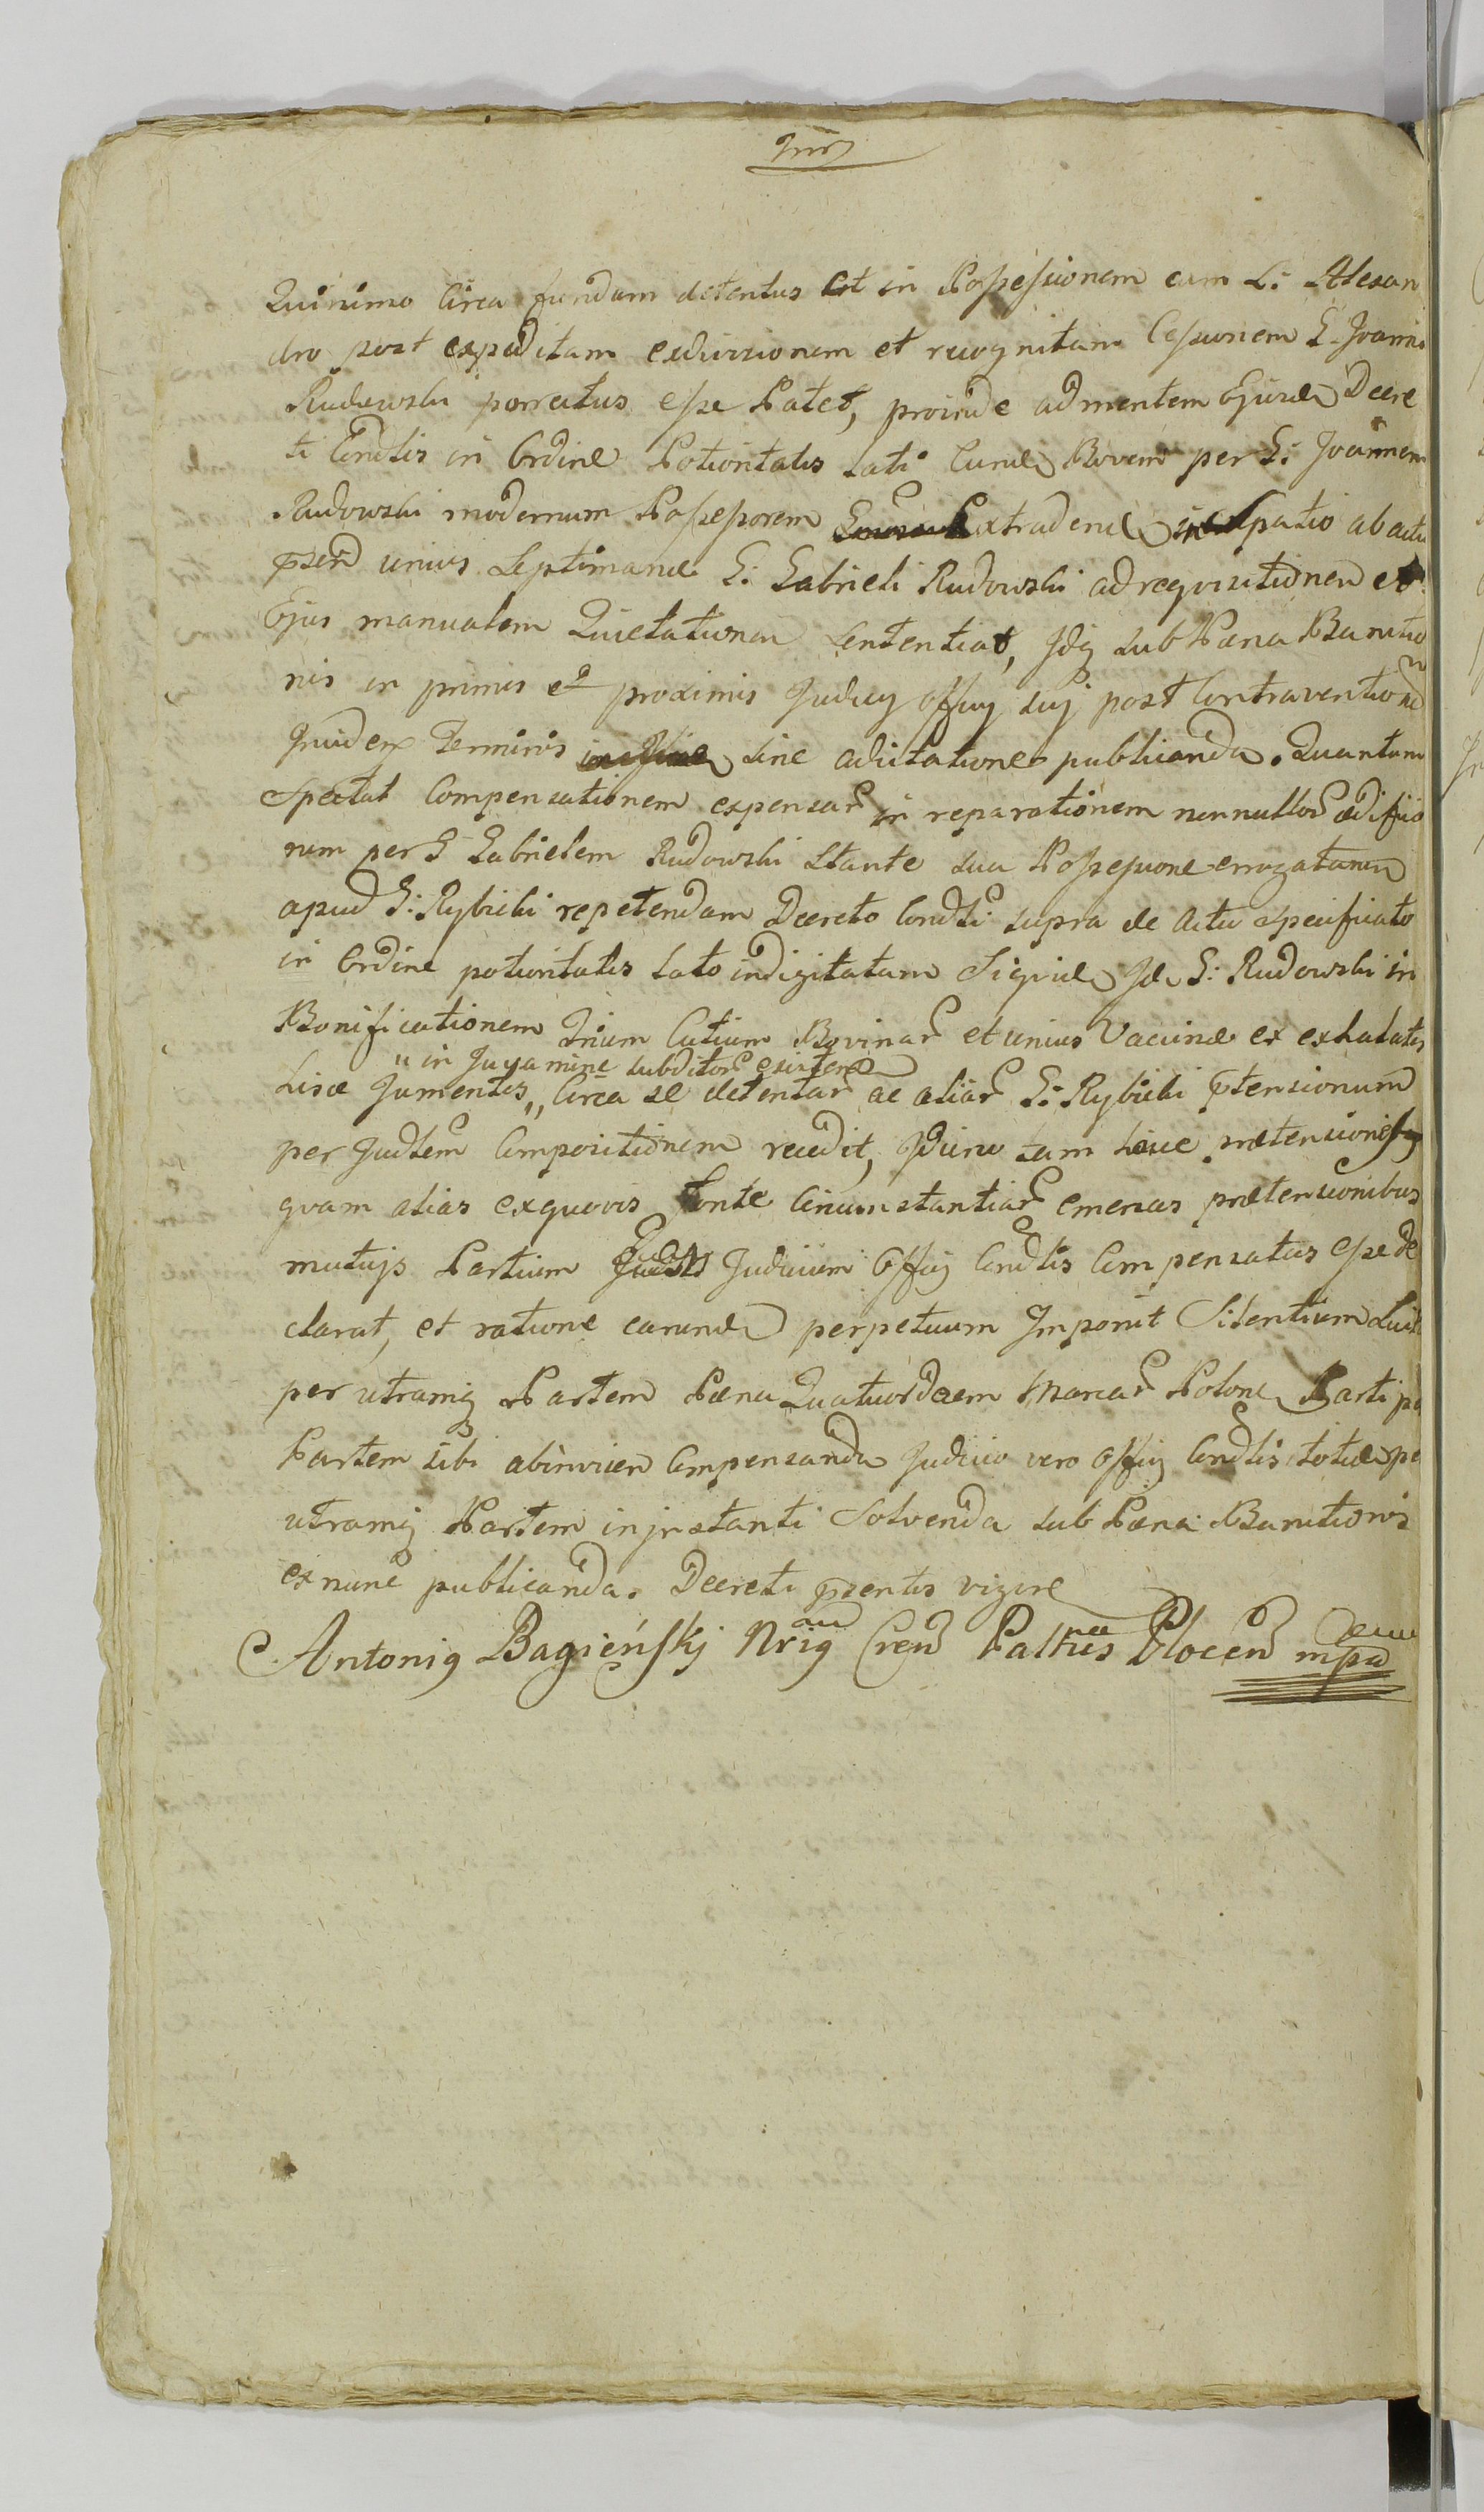 Quinimo Circa fundum detentus est in Possessionem cum G: Alexan
dro post expeditam exdivisionem et recognitam Cessionem G. Joanni
Rudowski porrectus esse Patet, proinde ad mentem Ejusd Decre
ti Condlis in Ordine Potioritatis Lati Bovem per G: Joannem
Rudowski modernum Possessorem Extradend spatio ab actu
pntj unius Septimanæ G: Gabrieli Rudowski ad requisitionem et
Ejus manualem Quietationem Sententiat, Idq sub Pæna Bannitio
nis in primis et proximis Judicij Officij sui post Contraventionem
Ejusdem Terminis sine adcitatione publicanda. Quantum
Spectat Compensationem expensar in reparationem nonnullor ædificio
rum per G Gabrielem Rudowski Stante sua Possessione errogatarum
apud G: Rybicki repetendam Decreto Condli supra de Actu specificato
in Ordine potioritatis Lato indigitatam Siquid G: Rudowski in
Bonificationem Trium Cutium Bovinar et unius Vaccinæ ex exhalatis
" in Juvamine subditor existen
Jumentis " Circa se detentar ac aliar G: Rybicki ptensionum
per Judlem Compositionem recedit, Ideirco tam hasce prætensiones
quam alias exquovis fonte Circumstantiar emersas prætensionibus
mutuis Partium Judicium Officij Condlis Compensatas esse de
clarat, et ratione earund perpetuum Imponit Silentium
per utramq Partem Pæna Quatuordecem Marcar Polon Parti per
Partem sibi abinvicem Compensanda Judicio vero Officij Condlis per
utramq Partem in instanti Solvenda sub Pæna Bannitionis
ex nunc publicanda. Decreti pnsentis vigore
Antonig Bagieńskj Plocen mpa